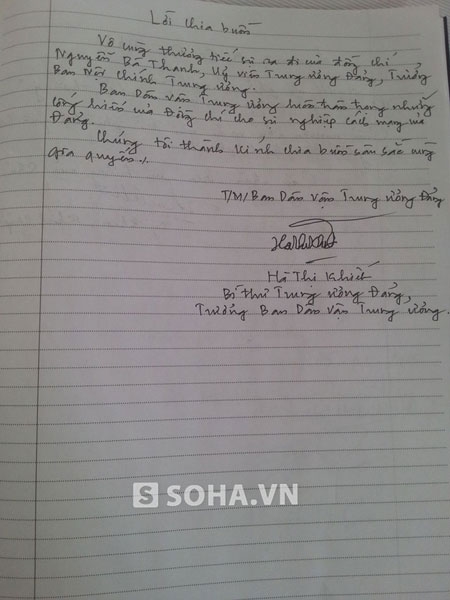 Lời chia buồn
Vô cùng thương tiếc sự ra đi của đồng chí
Nguyễn Bá Thanh, Uỷ viên Trung ương Đảng, Trưởng
Ban Nội chính Trung ương.
Ban Dân vận Trung ương luôn trân trọng những
cống hiến của Đồng chí cho sự nghiệp cách mạng của
Đảng.
Chúng tôi thành kính chia buồn sâu sắc cùng
gia quyến./.
T/M/ Ban Dân vận Trung ương Đảng
Hà Thị Khiết
Bí thư Trung ương Đảng,
Trưởng Ban Dân vận Trung ương.
S SOHA.VN